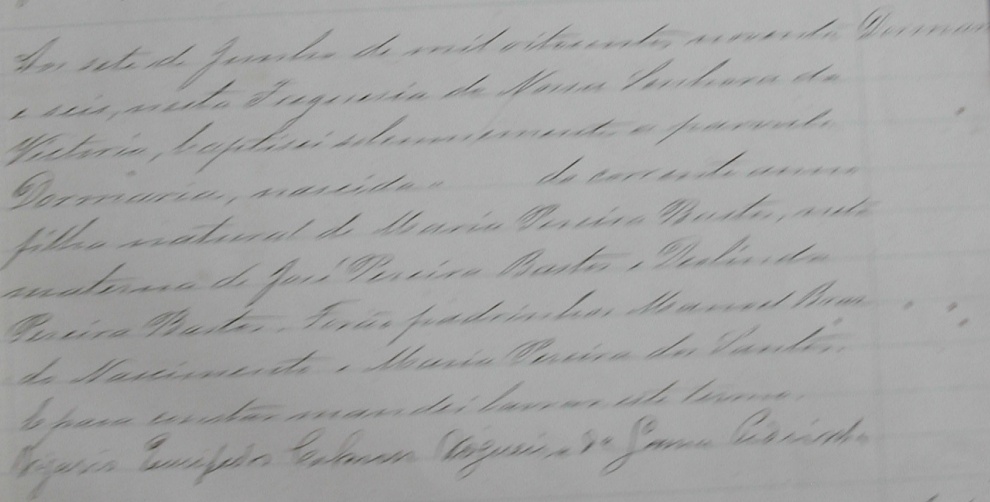 Aos sete de Junho de mil oitocentos noventa Dormar
e seis, nesta Freguesia de Nossa Senhora da
Victoria, baptisei solemnemente a parvula
Dormaria, nascida a do corrente anno
filha natural de Maria Pereira Bastos, neta
materna de José Pereira Bastos e Deolinda
Pereira Bastos. Forão padrinhos Manoel Bras
do Nascimento e Maria Pereira dos Santos.
E para constar mandei lavrar este termo.
Vigario